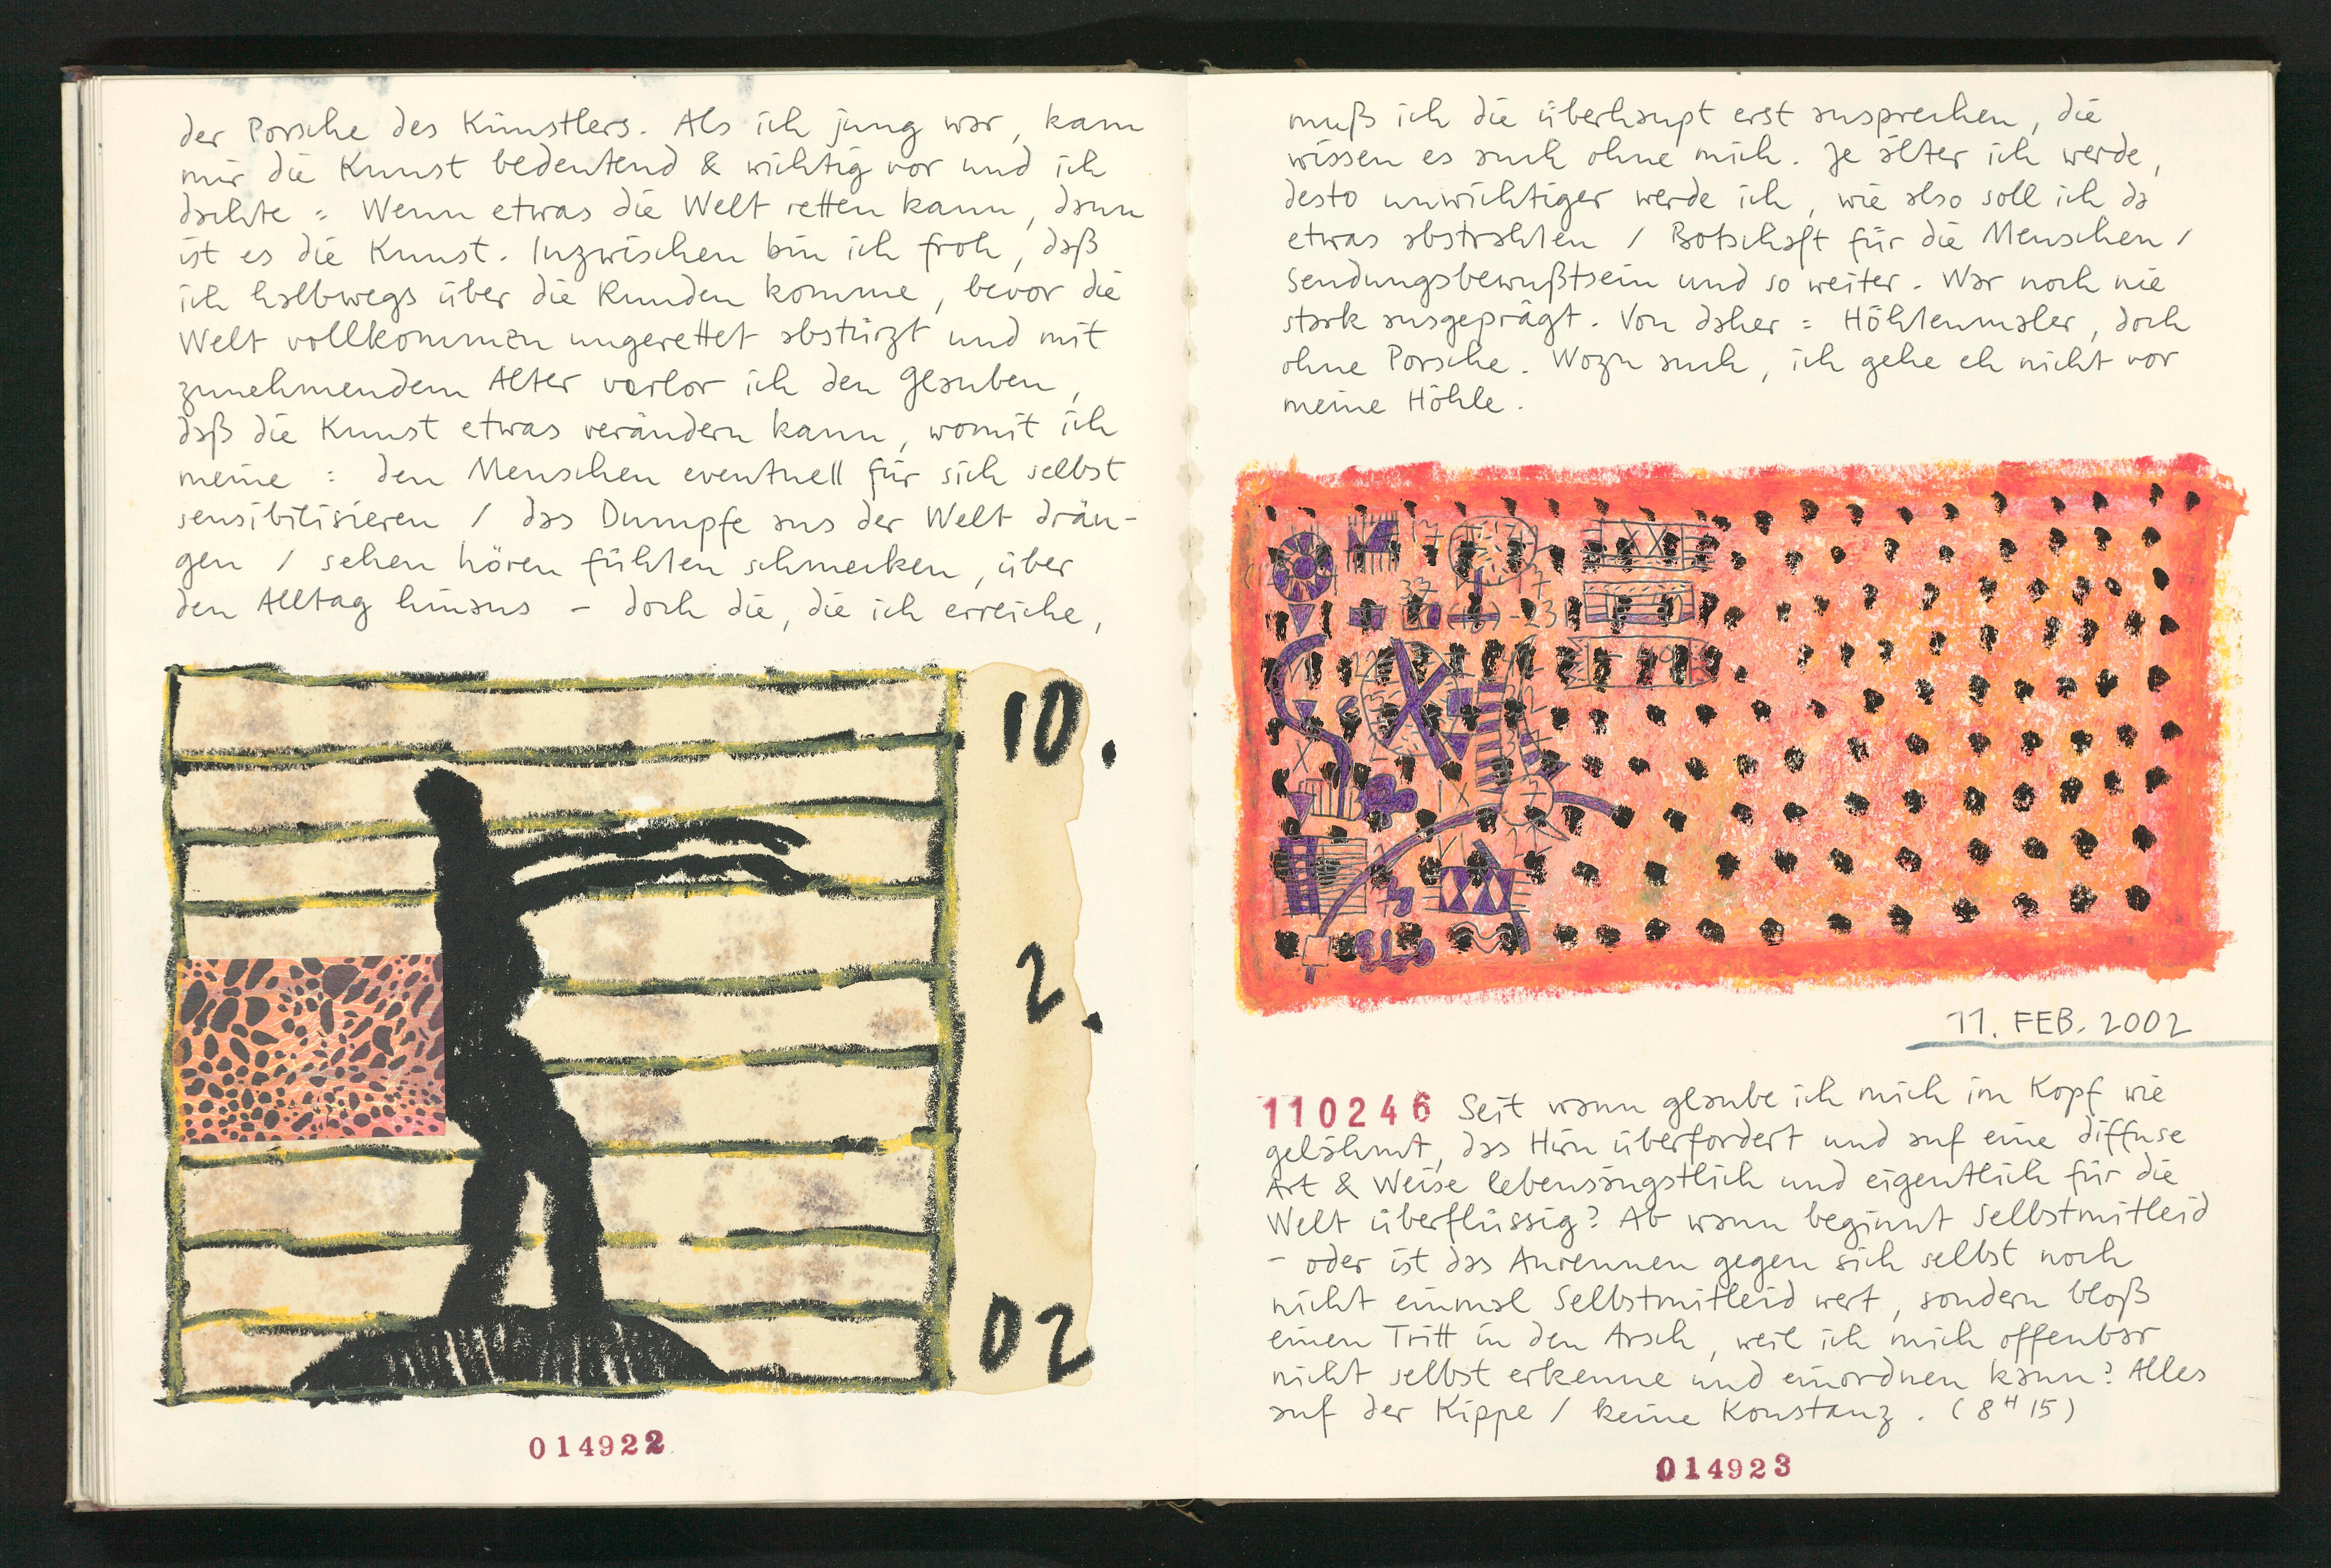 der Porsche des Künstlers. Als ich jung war, kam
mir die Kunst bedeutend & wichtig vor und ich
dachte : Wenn etwas die Welt retten kann, dann
ist es die Kunst. Inzwischen bin ich froh, daß
ich halbwegs über die Runden komme, bevor die
Welt vollkommen ungerettet abstürzt und mit
zunehmendem Alter verlor ich den Glauben,
daß die Kunst etwas verändern kann, womit ich
meine : den Menschen eventuell für sich selbst
sensibilisieren / das Dumpfe aus der Welt drän-
gen / sehen hören fühlen schmecken, über
den Alltag hinaus – doch die, die ich erreiche,
10.
2.
02
014922
muß ich die überhaupt erst ansprechen, die
wissen es auch ohne mich. Je älter ich werde,
desto unwichtiger werde ich, wie also soll ich da
etwas abstrahlen / Botschaft für die Menschen /
Sendungsbewußtsein und so weiter. War noch nie
stark ausgeprägt. Von daher : Höhlenmaler, doch
ohne Porsche. Wozu auch, ich gehe eh nicht vor
meine Höhle.
11. FEB. 2002
110246 Seit wann glaube ich mich im Kopf wie
gelähmt, das Hirn überfordert und auf eine diffuse
Art & Weise lebensängstlich und eigentlich für die
Welt überflüssig? Ab wann beginnt Selbstmitleid
– oder ist das Anrennen gegen sich selbst noch
nicht einmal Selbstmitleid wert, sondern bloß
einen Tritt in den Arsch, weil ich mich offenbar
nicht selbst erkenne und einordnen kann? Alles
auf der Kippe / keine Konstanz. (8H15)
014923